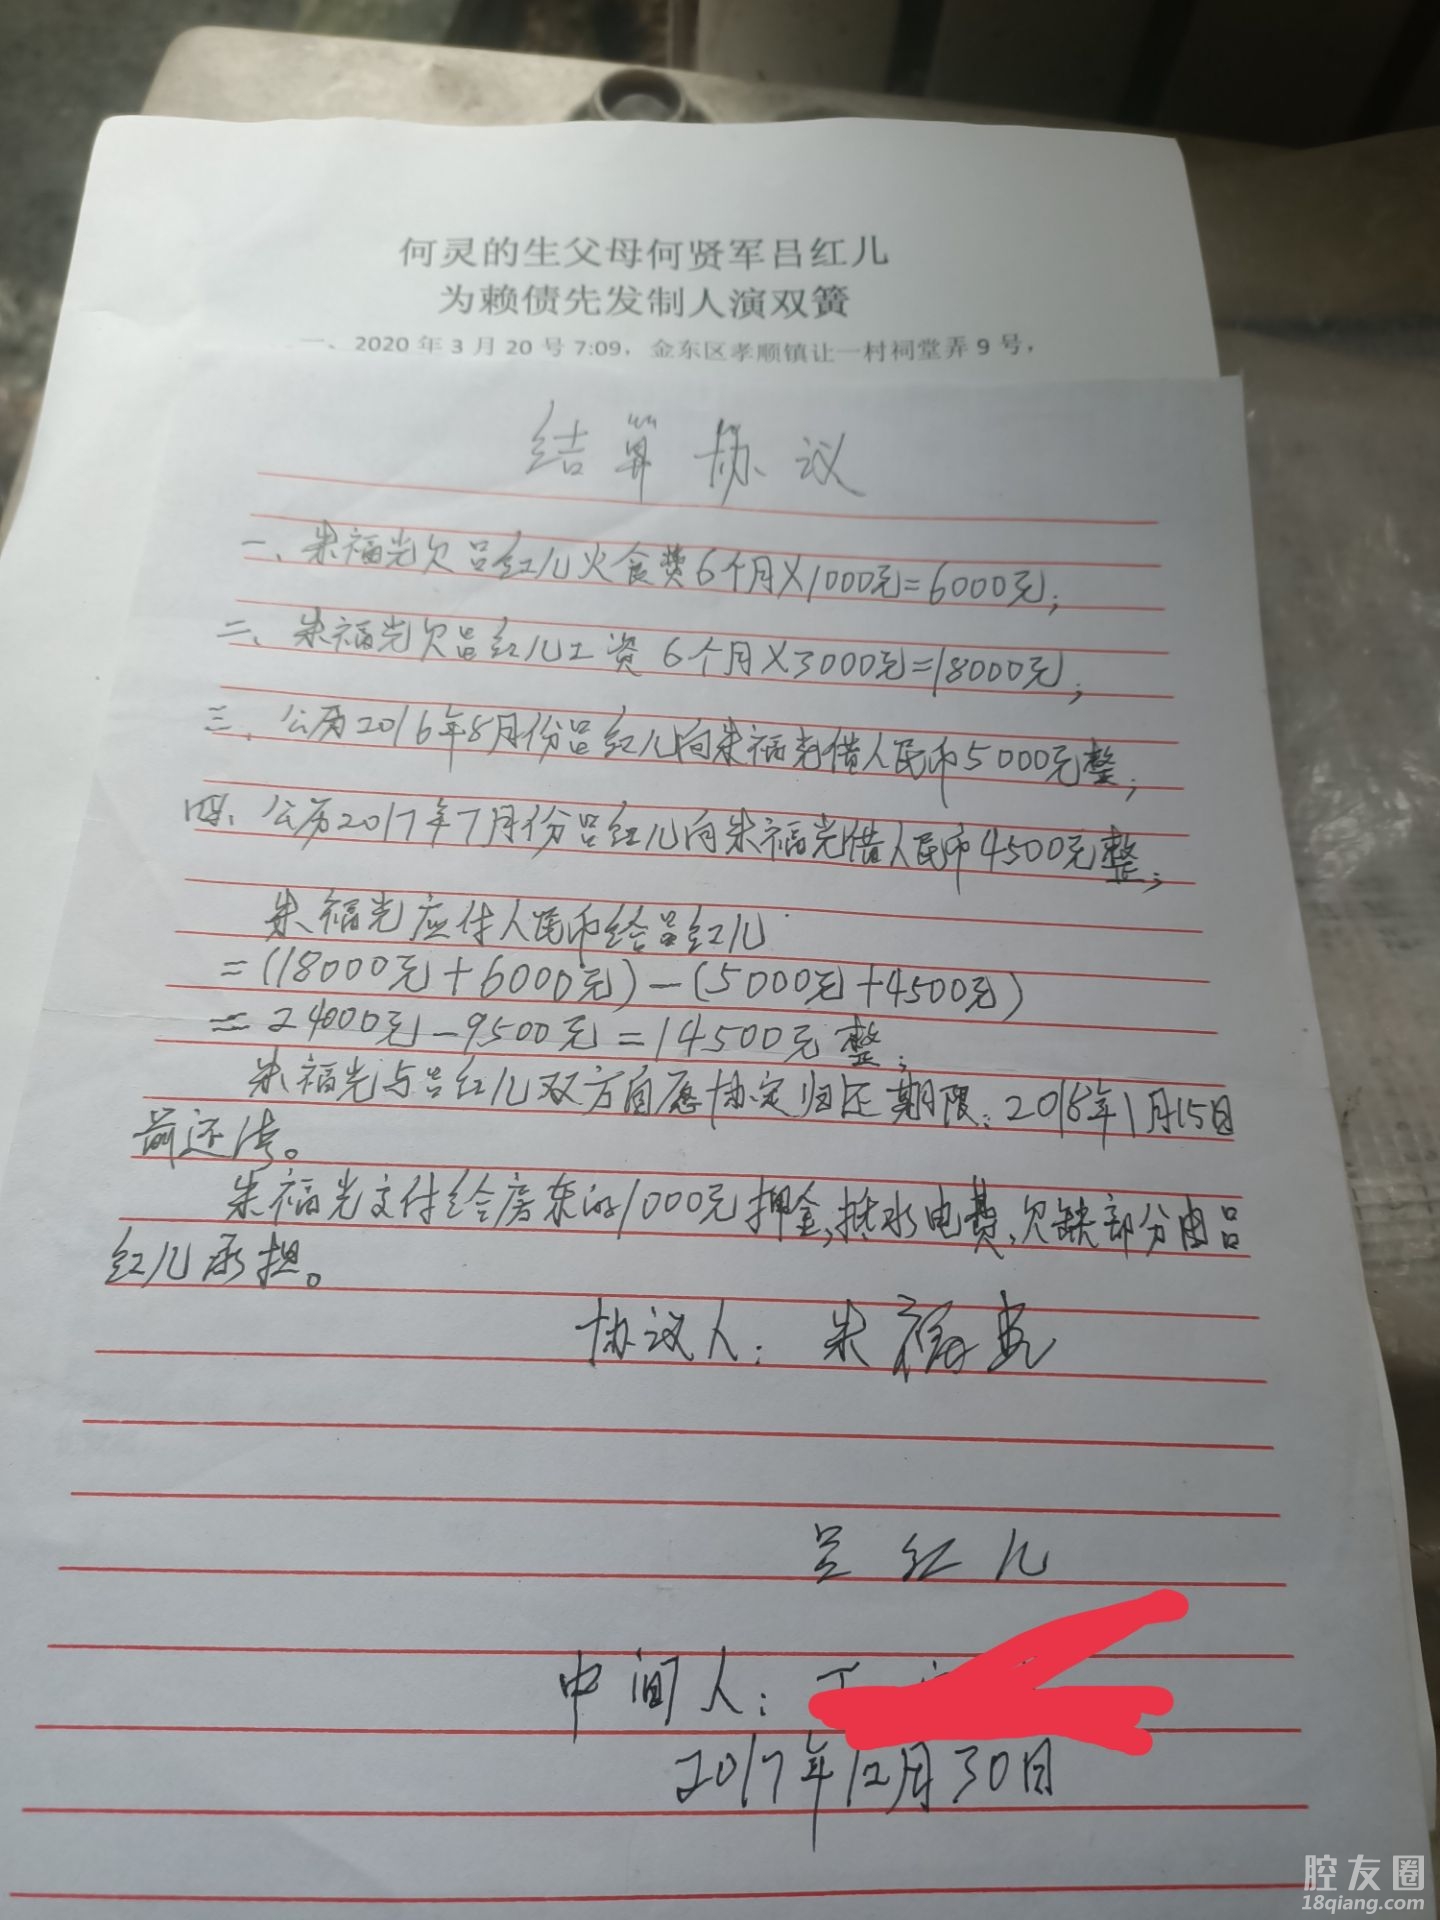 何灵的生父母何贤军吕红儿
为赖债先发制人演双簧
一、2020年3月20号7:09，金东区孝顺镇让一村祠堂弄9号，
结算协议
一、朱福光欠吕红儿火食费6个月X1000元=6000元；
二、朱福光欠吕红儿工资 6个月X3000元=18000元；
三、公历2016年8月份吕红儿向朱福光借人民币5000元整；
四、公历2017年7月份吕红儿向朱福光借人民币4500元整；
朱福光应付人民币给吕红儿
=(18000元+6000元)-(5000元+4500元)
=24000元-9500元=14500元整；
朱福光与吕红儿双方自愿协定归还期限：2018年1月15日
前还清。
朱福光支付给房东的1000元押金，抵水电费，欠缺部分由吕
红儿承担。
协议人：朱福光
吕红儿
中间人：
2017年12月30日
腔友圈
18qiang.com